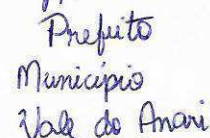 Prefeito
Município
Vale do Anari